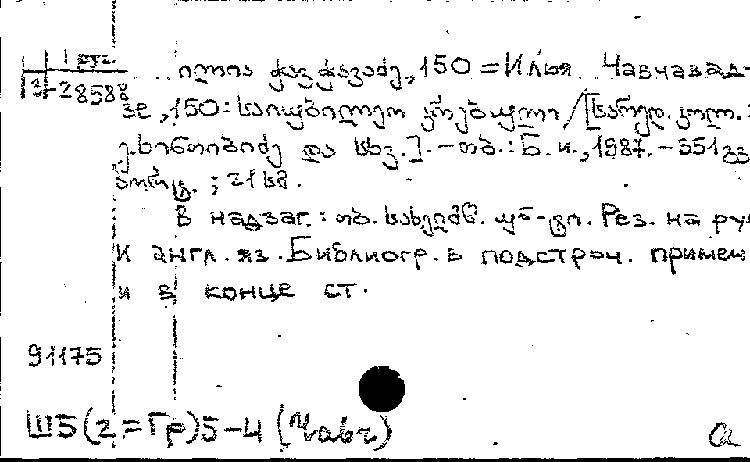 груз.
13-28588 ილია ჭავჭავაძე, 150 = Илья Чавчавад-
зе, 150: საიუბილეო კრებული / [სარედ. კოლ.:
გ. ხინთიბიძე და სხვ.]. - თბ.: Б. и., 1987. - 351 გვ
პორტ.; 21 სმ.
В надзаг.: თბ. სახელმწ. უნ-ტი. Рез. на ру
и англ. яз. Библиогр. в подстроч. примеч
и в конце ст.
91175
Ш5(2=Гр)5-4 (Чавч)